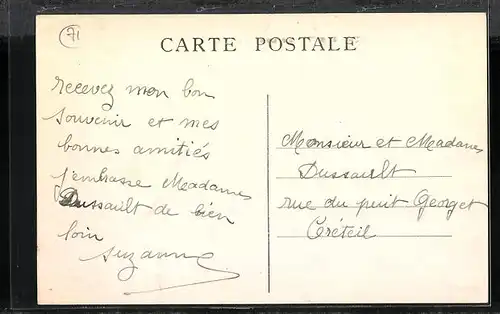 71
CARTE POSTALE
recevez mon bon
souvenir et mes
bonnes amitiés
j'embrasse Madame
Dussault de bien
loin
suzanne
Monsieur et Madame
Dussault
rue du puit Georget
Créteil